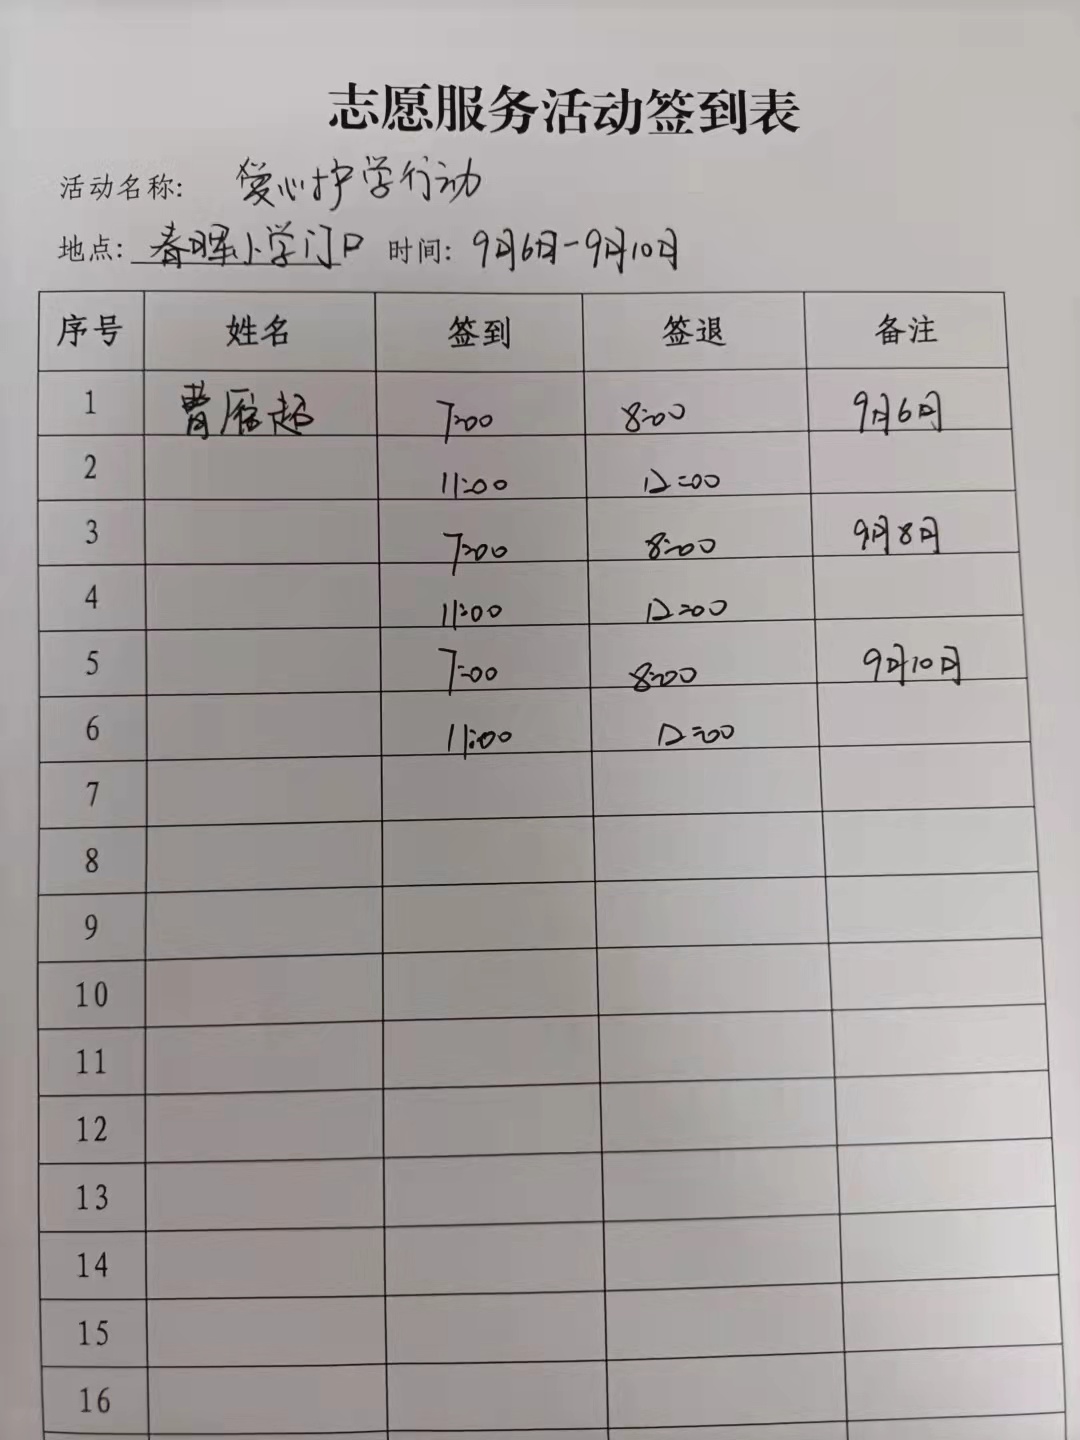 志愿服务活动签到表
活动名称: 爱心护学行动
地点: 春晖小学门口 时间: 9月6日-9月10日
序号 姓名 签到 签退 备注
1 曹雁超 7:00 8:00 9月6日
2 11:00 12:00
3 7:00 8:00 9月8日
4 11:00 12:00
5 7:00 8:00 9月10日
6 11:00 12:00
7
8
9
10
11
12
13
14
15
16